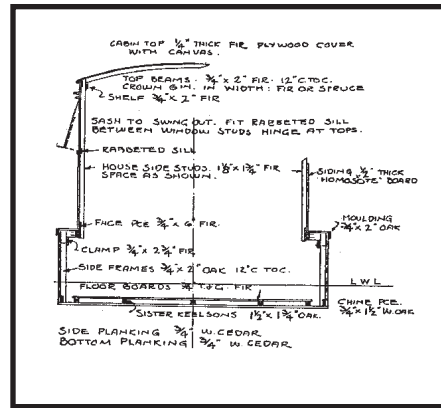 CABIN TOP 1/4" THICK FIR PLYWOOD COVER
WITH CANVAS.
TOP BEAMS. 3/4" x 2" FIR. 12" C. TO C.
CROWN 6 IN. IN WIDTH. FIR OR SPRUCE
SHELF 3/4" x 2" FIR
SASH TO SWING OUT. FIT RABBETED SILL
BETWEEN WINDOW STUDS HINGE AT TOPS.
RABBETED SILL
HOUSE SIDE STUDS. 1 1/8" x 1 3/4" FIR
SPACE AS SHOWN.
SIDING 1/2" THICK
"HOMOSOTE" BOARD
FACE PCE 3/4" x 6" FIR.
MOULDING
3/4" x 2" OAK
CLAMP 3/4" x 2 3/4" FIR
SIDE FRAMES 3/4" x 2" OAK 12" C TO C.
LWL
FLOOR BOARDS 3/4" T & G. FIR
CHINE PCE.
3/4" x 1 1/2" W. OAK
SISTER KEELSONS 1 1/2" x 1 3/4" OAK.
SIDE PLANKING 3/4" W. CEDAR
BOTTOM PLANKING 3/4" W. CEDAR